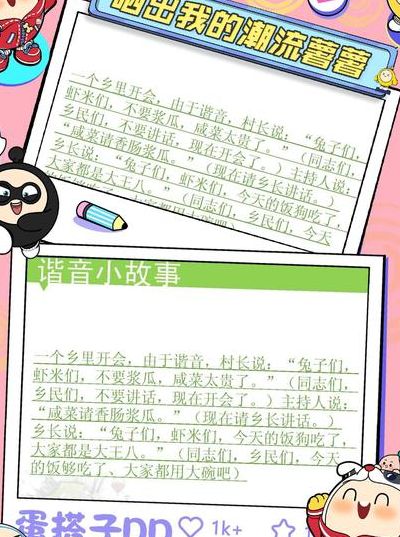 晒出我的潮流薯薯
一个乡里开会，由于谐音，村长说：“兔子们，
虾米们，不要浆瓜，咸菜太贵了。”（同志们，
乡民们，不要讲话，现在开会了。）主持人说：
“咸菜请香肠浆瓜。”（现在请乡长讲话。）
乡长说：“兔子们，虾米们，今天的饭狗吃了，
大家都是大王八。”（同志们，乡民们，今天
的饭够吃了、大家都用大碗吧）
谐音小故事
一个乡里开会，由于谐音，村长说：“兔子们，
虾米们，不要浆瓜，咸菜太贵了。”（同志们，
乡民们，不要讲话，现在开会了。）主持人说：
“咸菜请香肠浆瓜。”（现在请乡长讲话。）
乡长说：“兔子们，虾米们，今天的饭狗吃了，
大家都是大王八。”（同志们，乡民们，今天
的饭够吃了、大家都用大碗吧）
蛋搭子DD
1k+